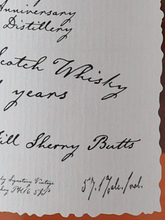 Anniversary
Distillery
Scotch Whisky
years
Sherry Butts
Signatory Vintage
57.1% alc./vol.